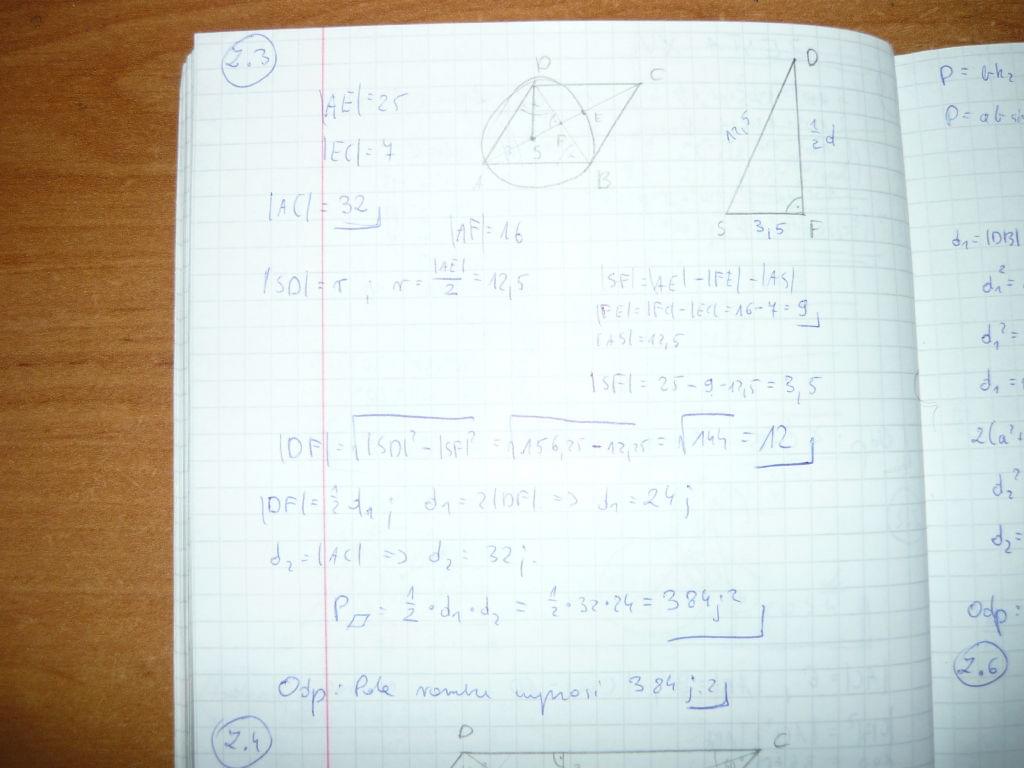 Z.3
|AE|=25
|EC|=7
|AC|=32
|AF|=16
D C E F S A B
D
12,5
½d
S 3,5 F
|SD|=r ; r=|AE|/2=12,5
|SF|=|AE|-|FE|-|AS|
|FE|=|FC|-|EC|=16-7=9
|AS|=12,5
|SF|=25-9-12,5=3,5
|DF|=√|SD|²-|SF|²=√156,25-12,25=√144=12
|DF|=½d₁; d₁=2|DF| => d₁=24j
d₂=|AC| => d₂=32j.
P▱=½·d₁·d₂=½·32·24=384j²
Odp: Pole rombu wynosi 384j²
Z.4
D C
P=
P=ab
d₁=|DB|
d₁²=
d₁²=
d₁=
2(a²+
d₂²
d₂=
Odp:
Z.6